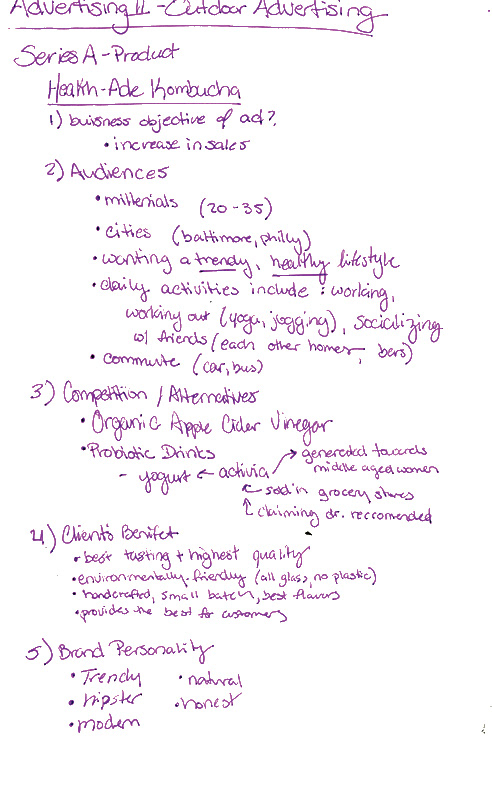 Advertising II - Outdoor Advertising
Series A - Product
Health-Ade Kombucha
1) buisness objective of ad?
• increase in sales
2) Audiences
• millenials (20-35)
• cities (baltimore, philly)
• wanting a trendy, healthy lifestyle
• daily activities include: working,
working out (yoga, jogging), socializing
w/ friends (each other homes, bars)
• commute (car, bus)
3) Competition / Alternatives
• Organic Apple Cider Vinegar
• Probiotic Drinks
- yogurt ← activia
→ genereded towards
middle aged women
← sold in grocery stores
↑ claiming dr. reccomended
4) Client's Benifet
• best tasting + highest quality
• environmentally-friendly (all glass, no plastic)
• handcrafted, small batch, best flavors
• provides the best for customers
5) Brand Personality
• Trendy • natural
• hipster • honest
• modern